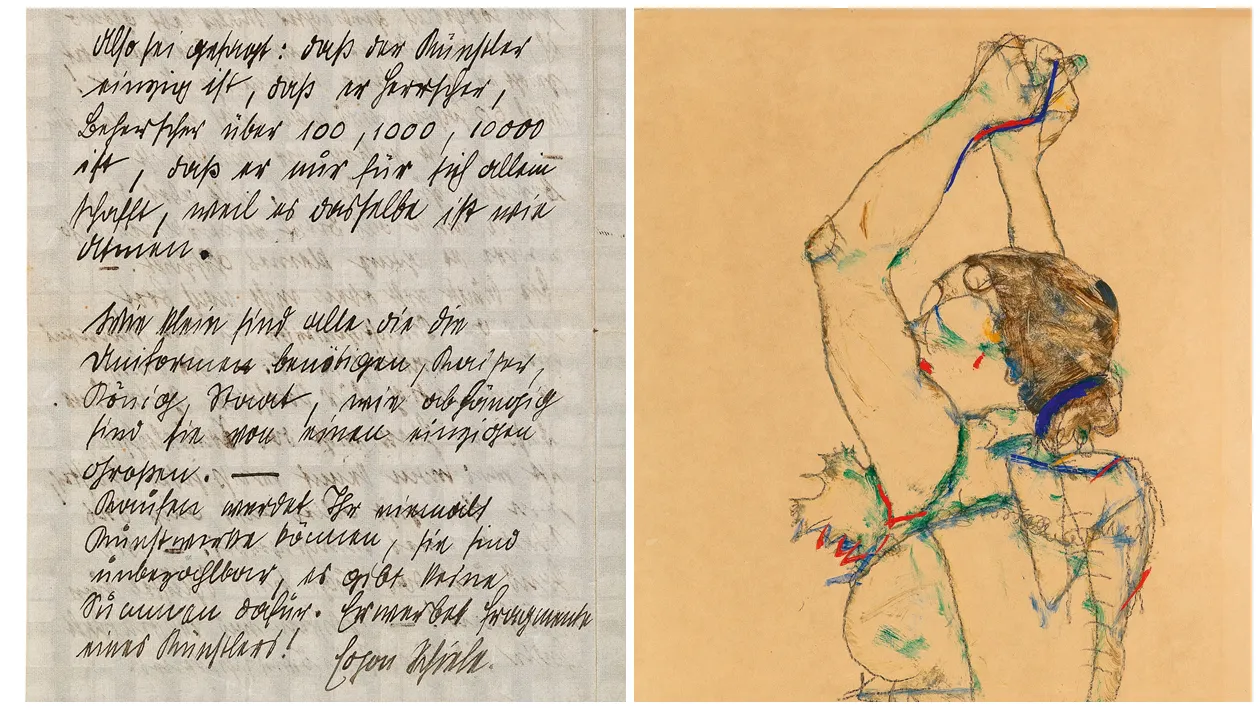 Also sei gesagt: daß der Künstler
einzig ist, daß er Herrscher,
Beherrscher über 100, 1000, 10000
ist, daß er nur für sich allein
schafft, weil es dasselbe ist wie
Atmen.
Wie klein sind alle die die
Uniformen benötigen, Kaiser,
König, Staat, wie abhängig
sind sie von einen einzigen
Großen. —
Kaufen werdet Ihr niemals
Kunstwerke können, sie sind
unbezahlbar, es gibt keine
Summen dafür. Erwerbet Fragmente
eines Künstlers!
Egon Schiele.